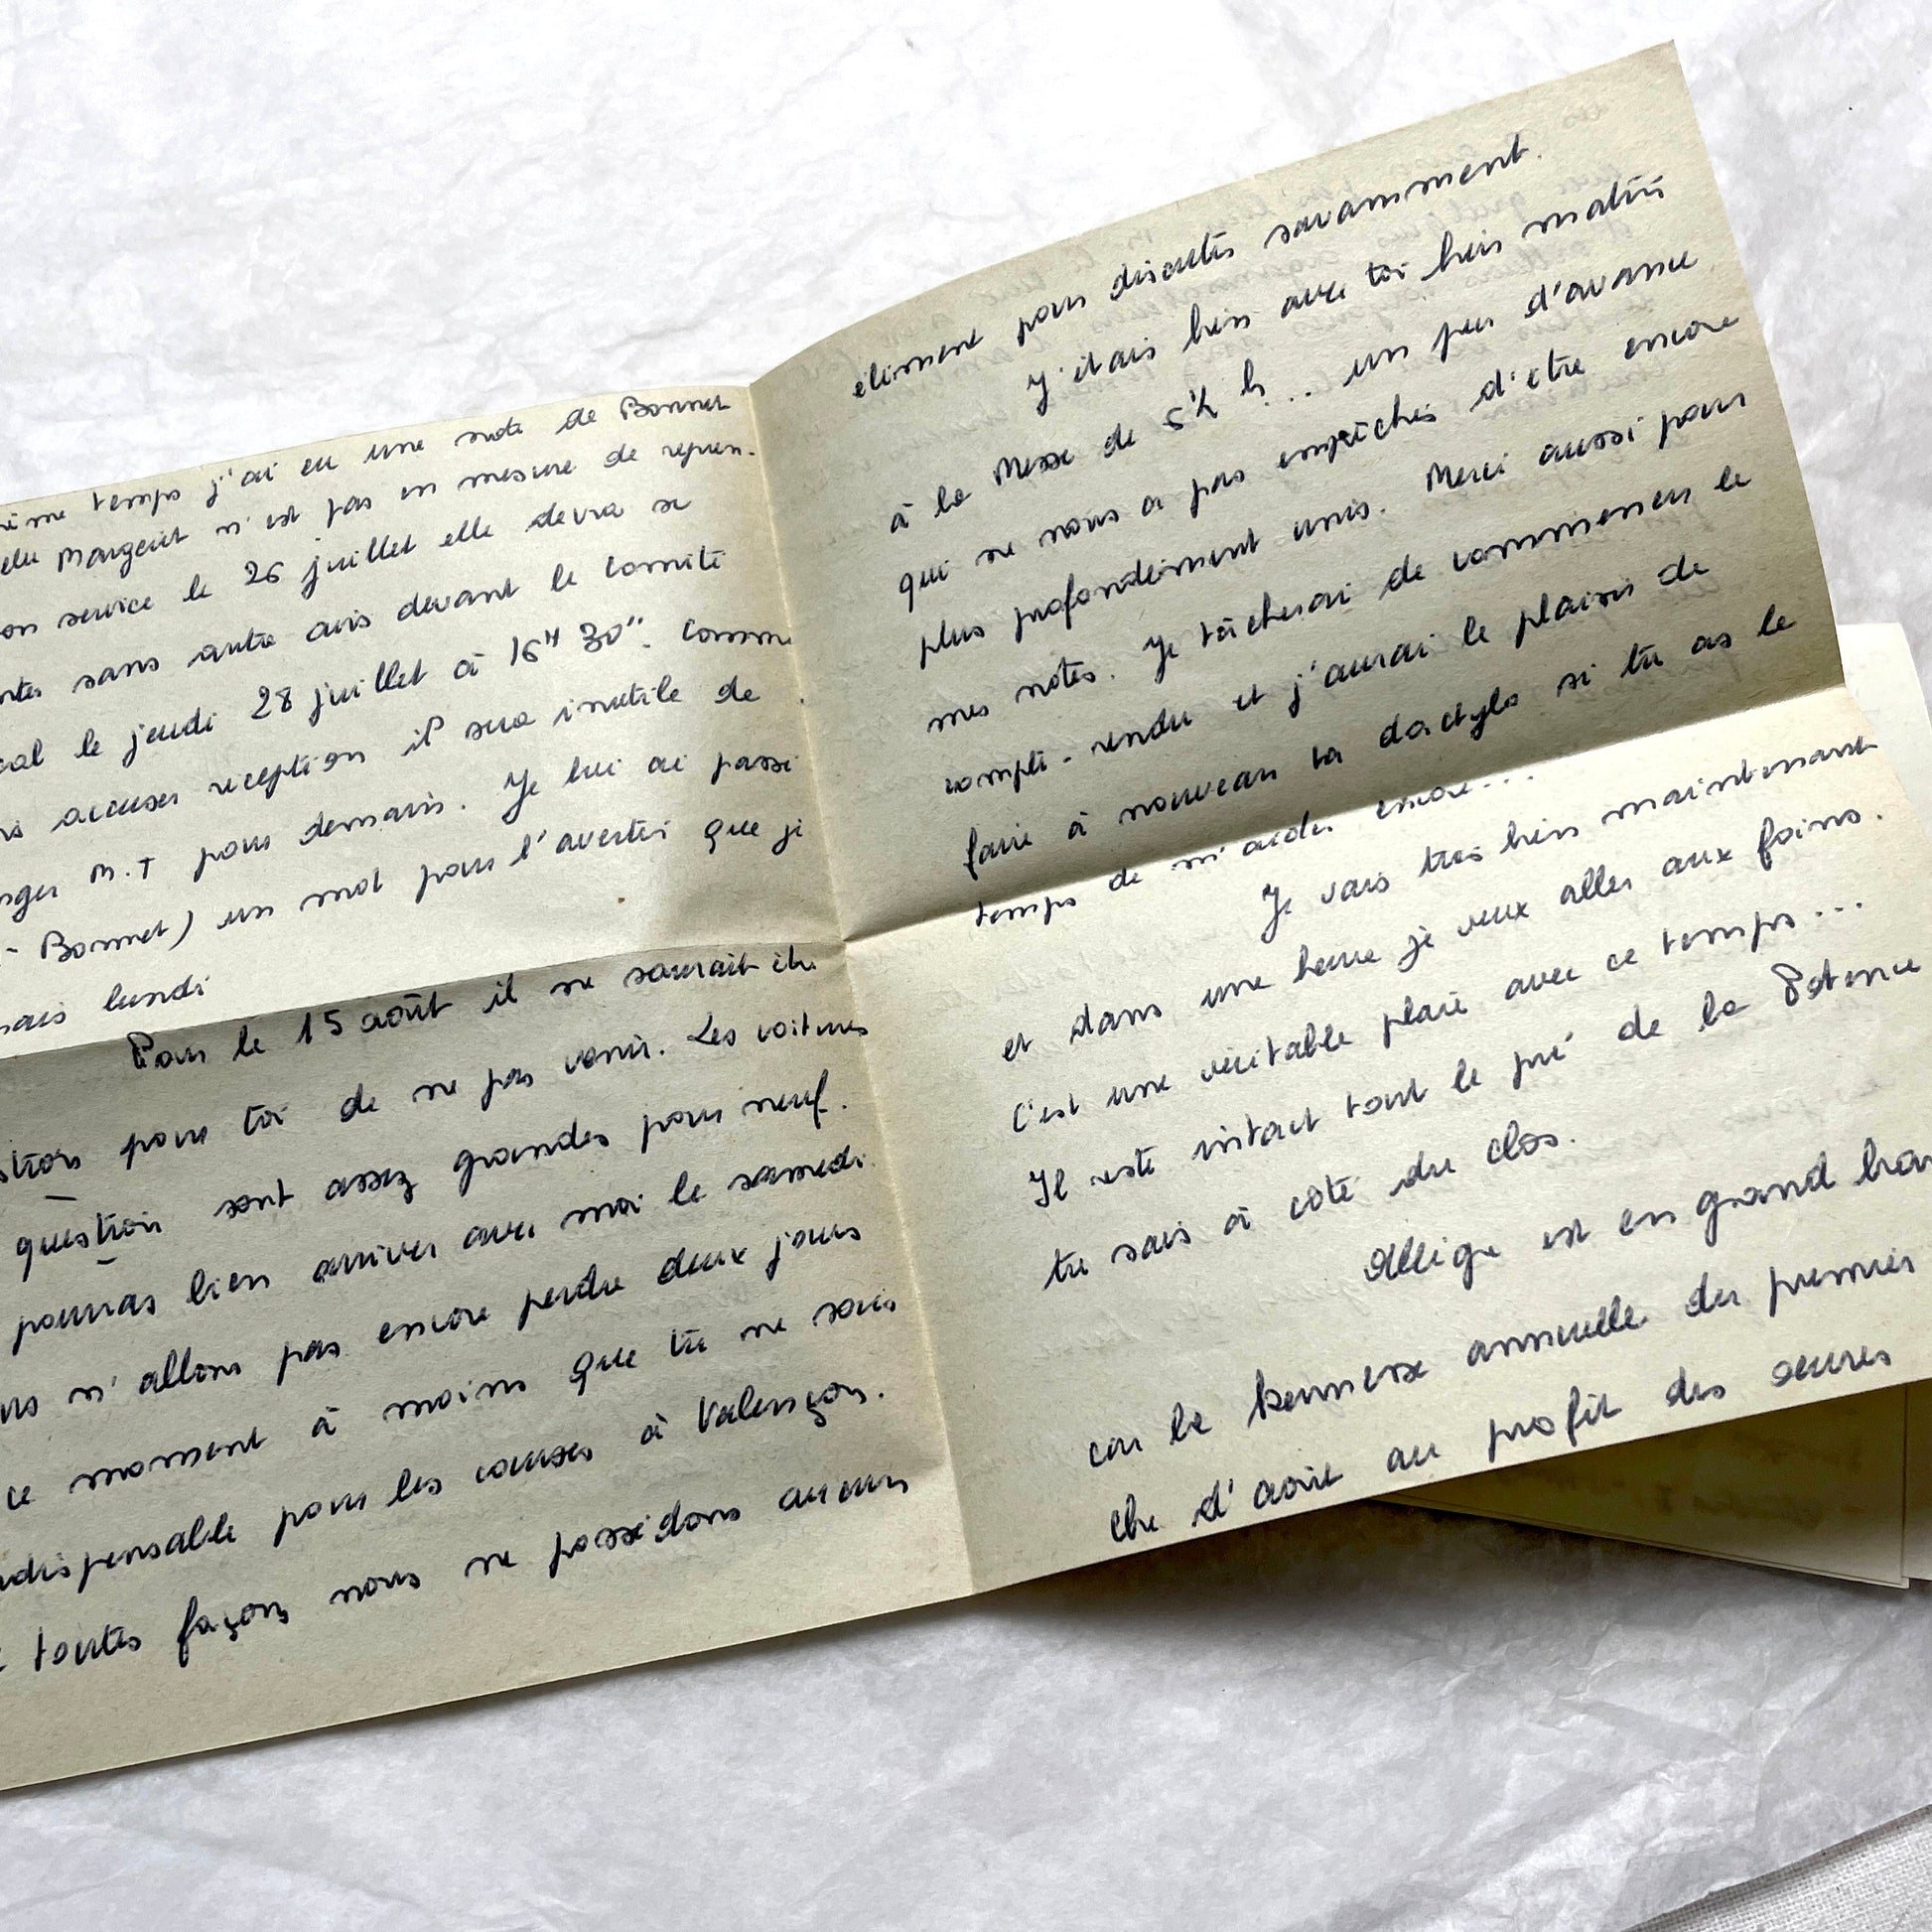 temps j'ai eu une note de Bonnet
Margerit n'est pas en mesure de repren-
service le 26 juillet elle devra se
sans autre avis devant le comité
le jeudi 28 juillet à 16H 30". Comme
accuser reception il sera inutile de
M.T pour demain. Je lui ai passé
Bonnet) un mot pour l'avertir que je
lundi
Pour le 15 août il ne saurait être
pour toi de ne pas venir. Les voitures
question sont assez grandes pour neuf.
pourras bien arriver avec moi le samedi.
n'allons pas encore perdre deux jours
ce moment à moins que tu ne sois
pour les courses à Valençon.
toutes façons nous ne possédons aucun
élément pour discuter savamment.
J'étais bien avec toi hier matin
à la Messe de 5 ½ h... un peu d'avance
qui ne nous a pas empêchés d'être encore
plus profondément unis. Merci aussi pour
mes notes. Je tâcherai de commencer le
compte-rendu et j'aurai le plaisir de
faire à nouveau ta dactylo si tu as le
temps de m'aider encore...
Je vais très bien maintenant
et dans une heure je veux aller aux foins.
C'est une véritable plaie avec ce temps...
Il reste intact tout le pré de la Potence
tu sais à côté du clos.
est en grand
car la kermesse annuelle du premier
che d'août au profit des œuvres